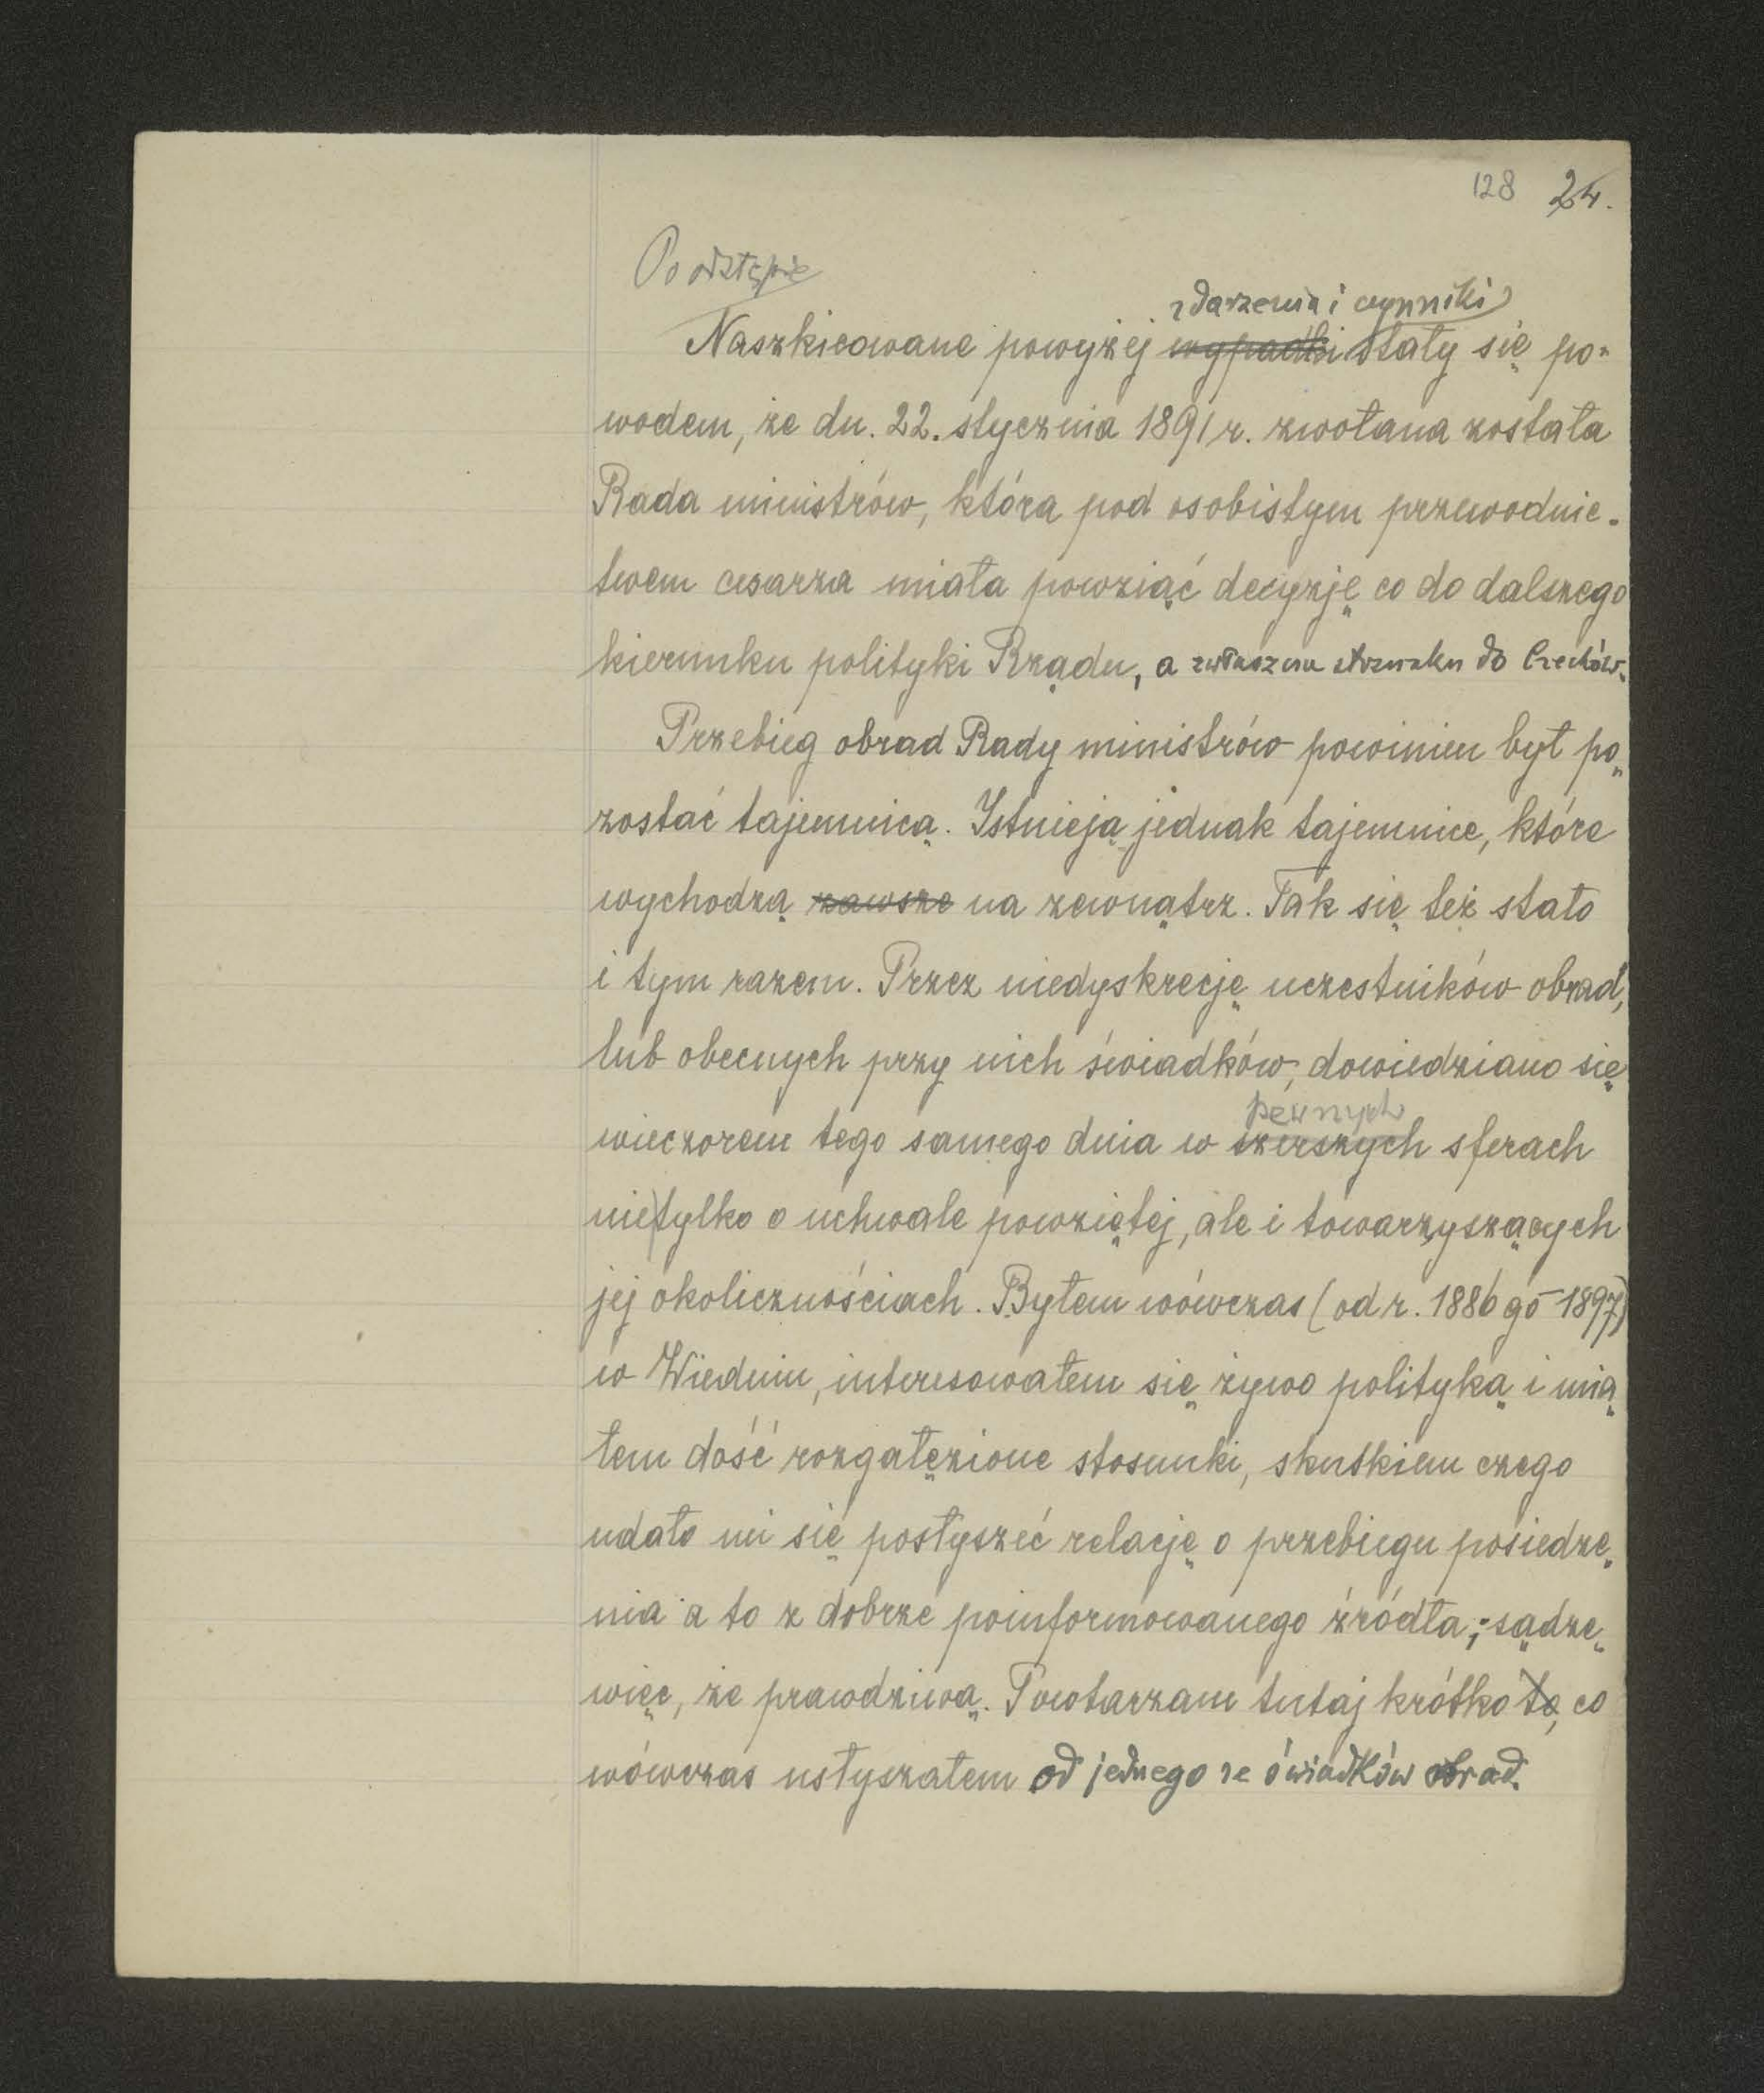 128 24.
Po odstępie
zdarzenia i czynniki
Naszkicowane powyżej wypadki stały się po-
wodem, że dn. 22. stycznia 1891 r. zwołana została
Rada ministrów, która pod osobistym przewodnic-
twem cesarza miała powziąć decyzję co do dalszego
kierunku polityki Rządu, a zwłaszcza stosunku do Czechów.
Przebieg obrad Rady ministrów powinien był po-
zostać tajemnicą. Istnieją jednak tajemnice, które
wychodzą zawsze na zewnątrz. Tak się też stało
i tym razem. Przez niedyskrecję uczestników obrad,
lub obecnych przy nich świadków, dowiedziano się
pewnych
wieczorem tego samego dnia w szerszych sferach
nietylko o uchwale powziętej, ale i towarzyszących
jej okolicznościach. Byłem wówczas (od r. 1886 go - 1897)
w Wiedniu, interesowałem się żywo polityką i mia-
łem dość rozgałęzione stosunki, skutkiem czego
udało mi się posłyszeć relację o przebiegu posiedze-
nia a to z dobrze poinformowanego źródła; sądzę
więc, że prawdziwą. Powtarzam tutaj krótko to, co
wówczas usłyszałem od jednego ze świadków obrad.